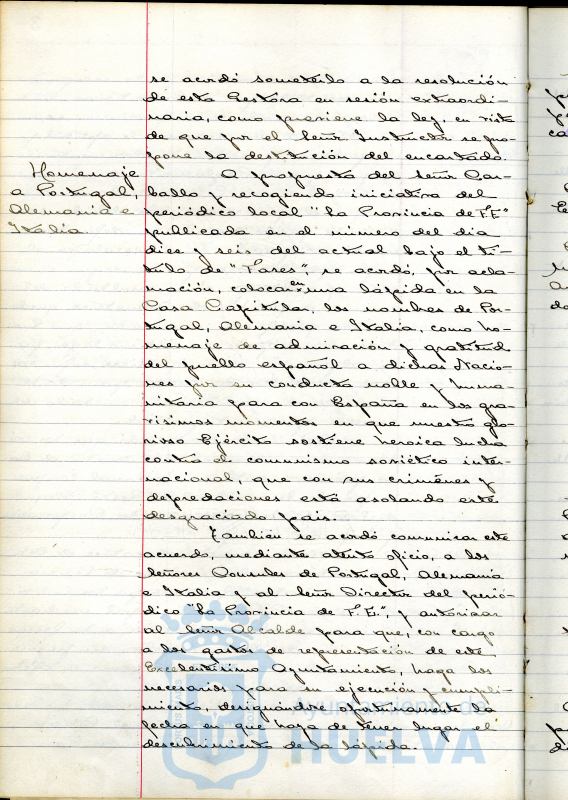 se acordó someterlo a la resolución
de esta Gestora en sesión extraordi-
naria, como previene la ley, en vista
de que por el Señor Instructor se pro-
pone la destitución del encartado.
Homenaje
a Portugal,
Alemania e
Italia
A propuesta del Señor Car-
ballo y recogiendo iniciativa del
periódico local "La Provincia de F.E"
publicada en el número del dia
diez y seis del actual bajo el tí-
tulo de "Fases", se acordó, por acla-
mación, colocar en una lápida en la
Casa Capitular, los nombres de Por-
tugal, Alemania e Italia, como ho-
menaje de admiración y gratitud
del pueblo español a dichas Nacio-
nes por su conducta noble y huma-
nitaria para con España en los gra-
visimos momentos en que nuestro glo-
rioso Ejército sostiene heroica lucha
contra el comunismo soviético inter-
nacional, que con sus crimenes y
depredaciones está asolando este
desgraciado pais.
También se acordó comunicar este
acuerdo, mediante atento oficio, a los
Señores Consules de Portugal, Alemania
e Italia y al Señor Director del perió-
dico "La Provincia de F.E.", y autorizar
al Señor Alcalde para que, con cargo
a los gastos de representación de este
Excelentísimo Ayuntamiento, haga los
necesarios para su ejecución y cumpli-
miento, designándose oportunamente la
fecha en que haya de tener lugar el
descubrimiento de la lápida.
Ayuntamiento de
HUELVA